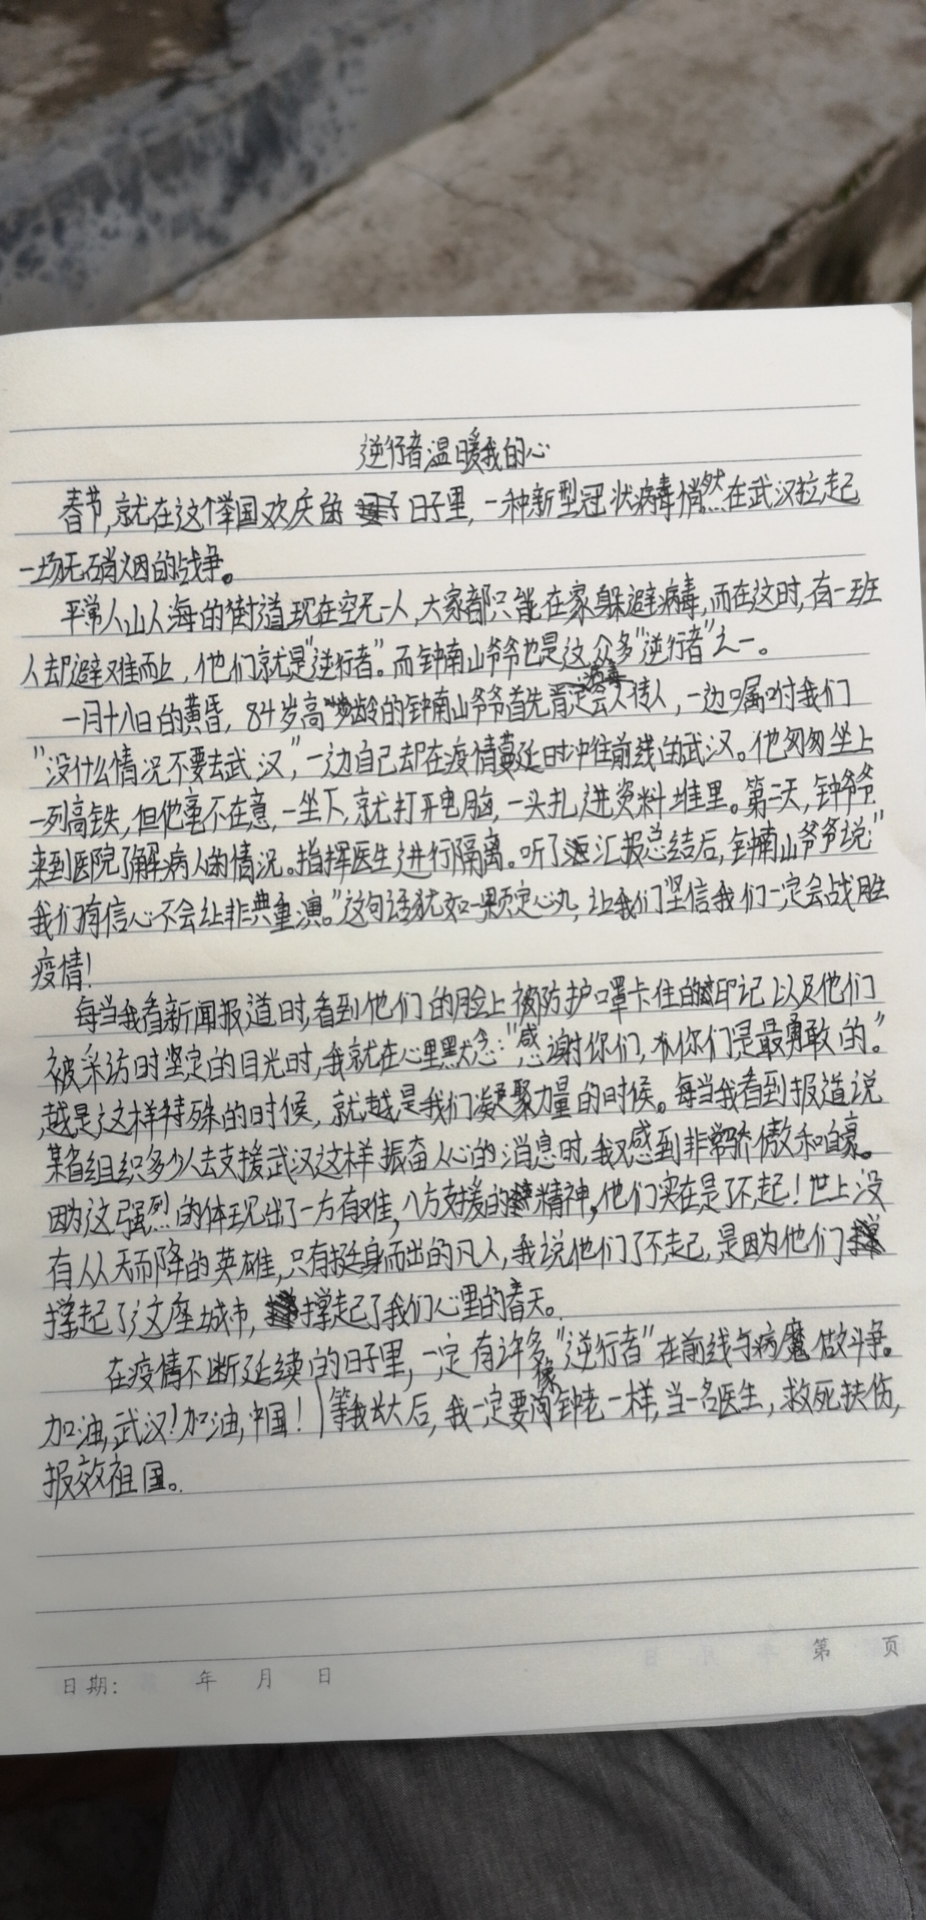 逆行者温暖我的心
春节,就在这个举国欢庆的日子里,一种新型冠状病毒悄然在武汉拉起
一场无硝烟的战争。
平常人山人海的街道现在空无一人,大家都只能在家躲避病毒,而在这时,有一班
人却避难而上,他们就是"逆行者"。而钟南山爷爷也是这众多"逆行者"之一。
一月十八日的黄昏,84岁高龄的钟南山爷爷首先肯定病毒会人传人,一边嘱咐我们
"没什么情况不要去武汉",一边自己却在疫情蔓延时冲往前线的武汉。他匆匆坐上
一列高铁,但他毫不在意,一坐下,就打开电脑,一头扎进资料堆里。第二天,钟爷爷
来到医院了解病人的情况。指挥医生进行隔离。听了汇报总结后,钟南山爷爷说:"
我们有信心不会让非典重演。"这句话犹如一颗定心丸,让我们坚信我们一定会战胜
疫情!
每当我看新闻报道时,看到他们的脸上被防护口罩卡住的印记以及他们
被采访时坚定的目光时,我就在心里默念:"感谢你们,你们是最勇敢的。"
越是这样特殊的时候,就越是我们凝聚力量的时候。每当我看到报道说
某省组织多少人去支援武汉这样振奋人心的消息时,我又感到非常骄傲和自豪。
因为这强烈的体现出了一方有难,八方支援的精神。他们实在是了不起!世上没
有从天而降的英雄,只有挺身而出的凡人,我说他们了不起,是因为他们
撑起了这座城市,撑起了我们心里的春天。
在疫情不断延续的日子里,一定有许多"逆行者"在前线与病魔做斗争。
加油,武汉!加油,中国!等我长大后,我一定要像钟老一样,当一名医生,救死扶伤,
报效祖国。
日期: 年 月 日
第 页